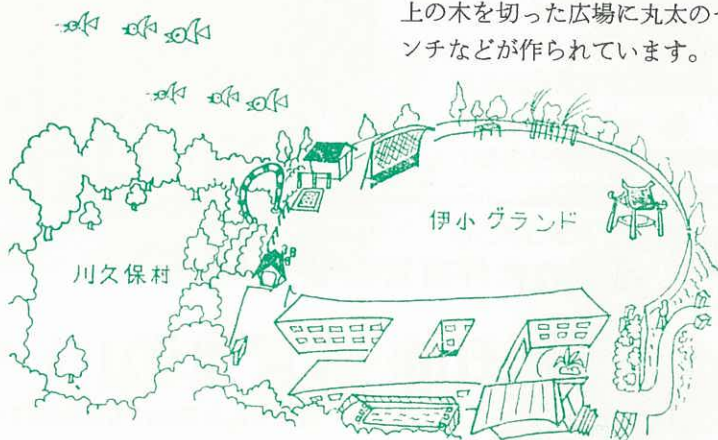 上の木を切った広場に丸太の
ンチなどが作られています。
伊小グランド
川久保村